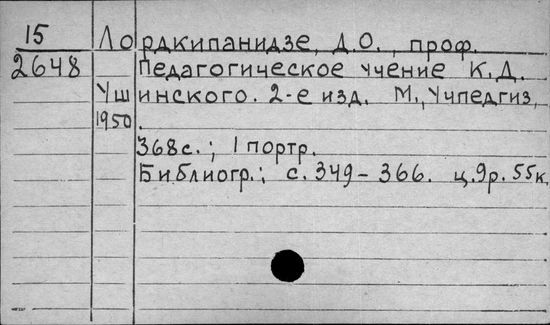 15 Лордкипанидзе, Д.О., проф.
2648 Педагогическое учение К.Д.
Ушинского. 2-е изд. М., Учпедгиз,
1950.
368с.; 1 портр.
Библиогр.: с. 349-366. ц.9р. 55к.